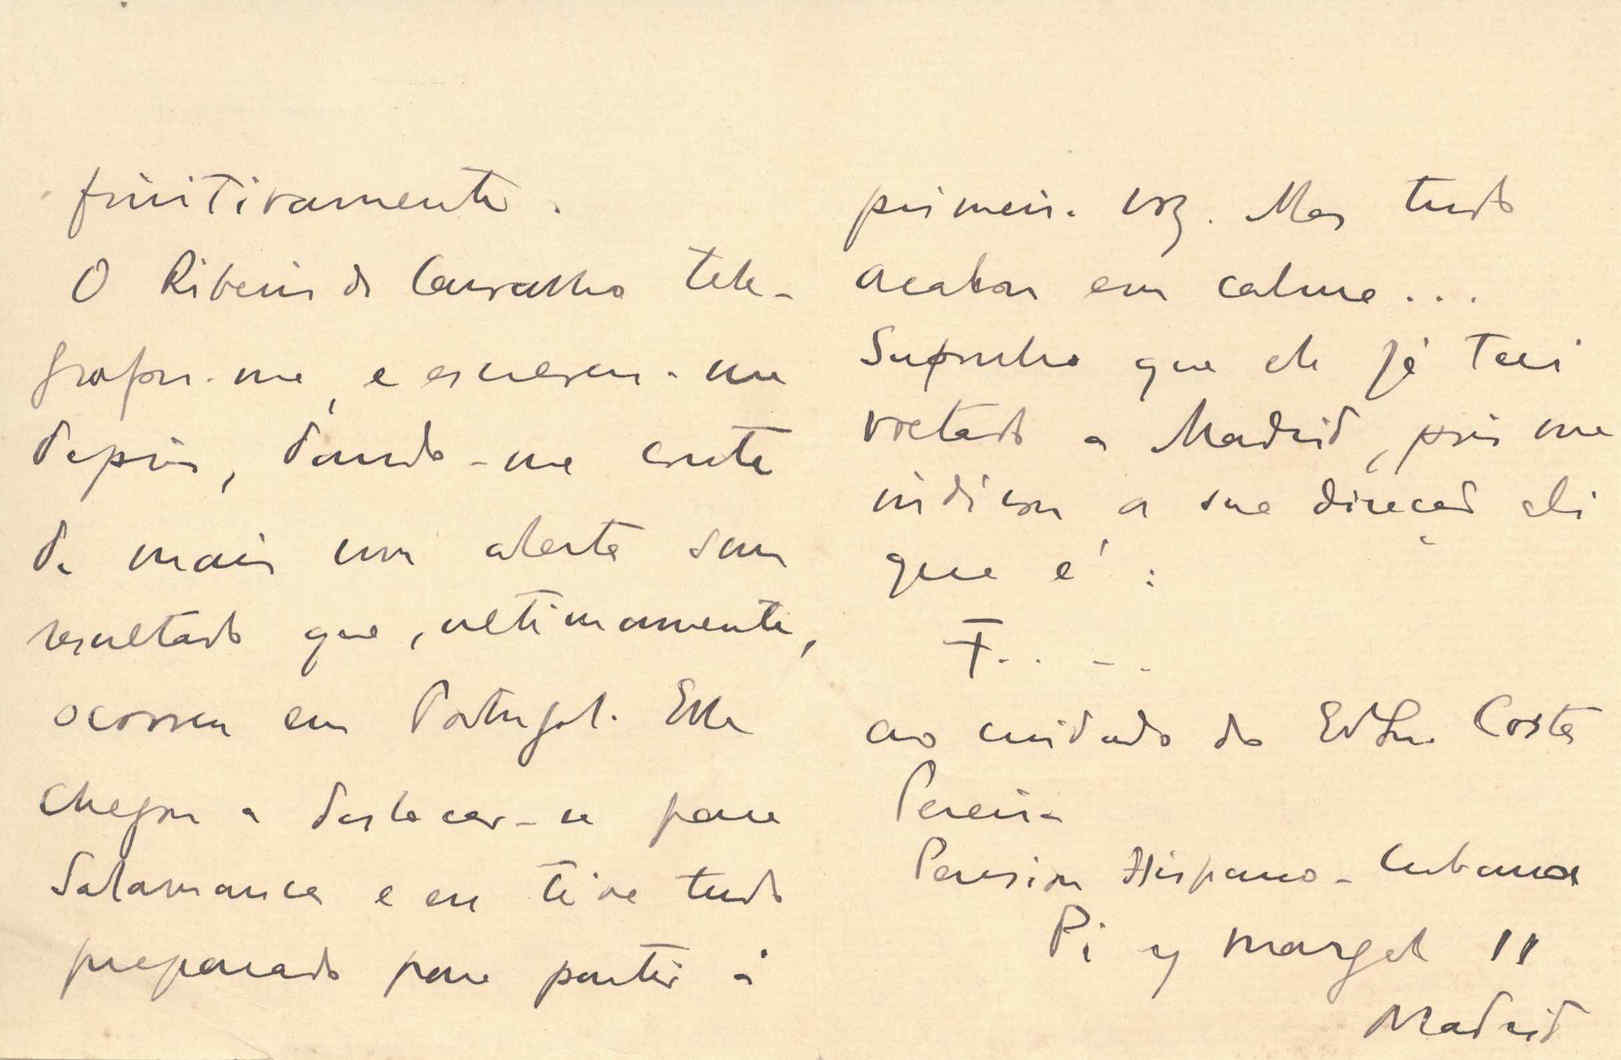 finitivamente.
O Ribeiro de Carvalho tele-
grafou-me, e escreveu-me
depois, dando-me conta
de mais um alerta sem
resultado que, ultimamente,
ocorreu em Portugal. Elle
chegou a deslocar-se para
Salamanca e eu tive tudo
preparado para partir á
primeira voz. Mas tudo
acabou em calma...
Suponho que ele já terá
voltado a Madrid, pois me
indicou a sua direcção ali
que é:
F.. --
ao cuidado de Costa
Pereira
Pension Hispano-Cubana
Pi y Margal 11
Madrid